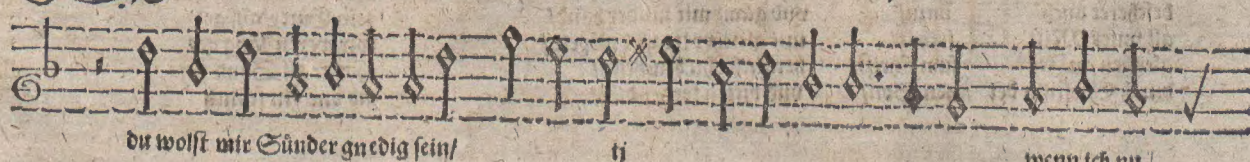 du wolst mir Sünder gnedig sein/ ij wenn ich nu/